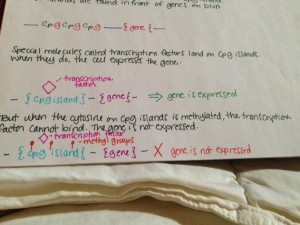 islands are found in front of genes on DNA
— CpgCpgCpg — {gene} —
Special molecules called transcription factors land on Cpg islands.
When they do, the cell expresses the gene.
transcription factor
- {Cpg island} - {gene} - ⇒ gene is expressed
But when the cytosine on Cpg islands is methylated, the transcription
factor cannot bind. The gene is not expressed.
transcription factor
methyl groups
- {Cpg island} - {gene} - X gene is not expressed